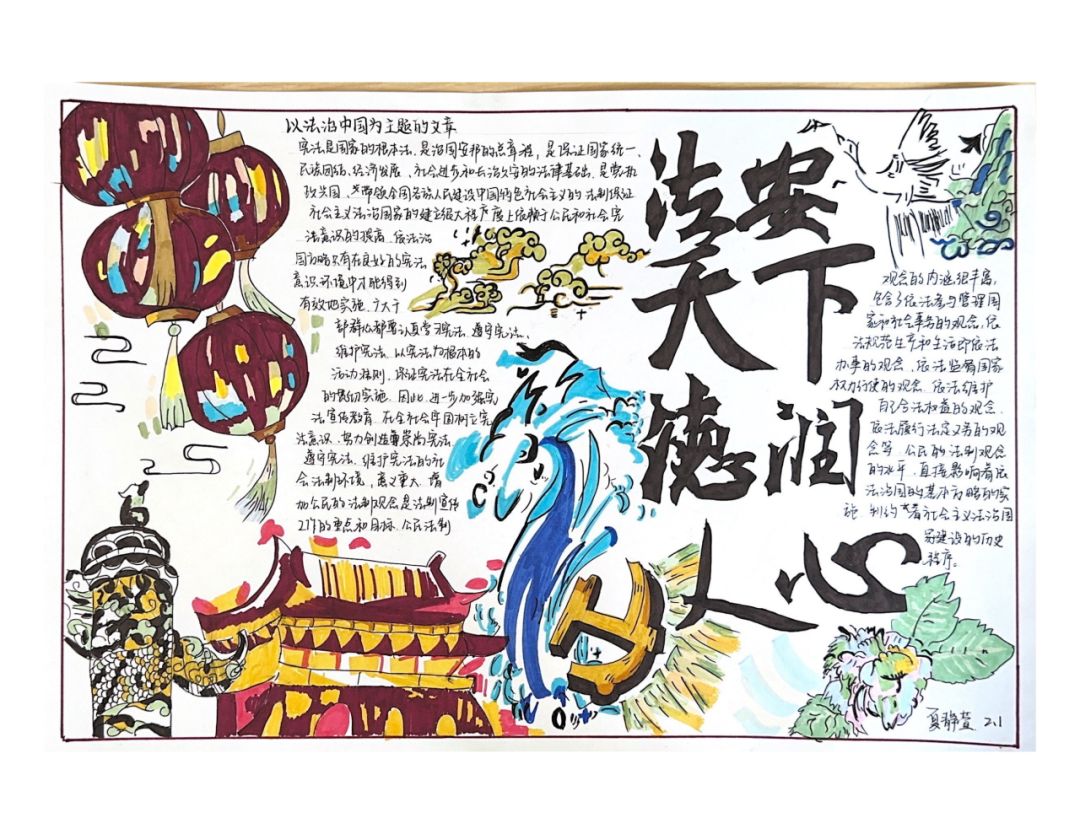 以法治中国为主题的文章
宪法是国家的根本法，是治国安邦的总章程，是保证国家统一、
民族团结、经济发展、社会进步和长治久安的法律基础，是党执
政兴国、带领全国各族人民建设中国特色社会主义的法制保证
社会主义法治国家的建立很大程度上依赖于公民和社会宪
法意识的提高，依法治
国方略只有在良好的宪法
意识环境中才能得到
有效地实施，广大干
部群众都要认真学习宪法、遵守宪法、
维护宪法、以宪法为根本的
活动准则，保证宪法在全社会
的贯彻实施。因此，进一步加强宪
法宣传教育，在全社会牢固树立宪
法意识，努力创造崇尚宪法、
遵守宪法、维护宪法的社
会法制环境，意义重大，增
加公民的法制观念是法制宣传
工作的重点和目标，公民法制
法安
天下
德润
人心
观念的内涵很丰富，
包含了依法参与管理国
家和社会事务的观念，依
法规范生产和生活即依法
办事的观念，依法监督国家
权力行使的观念，依法维护
自己合法权益的观念，
依法履行法定义务的观
念等，公民的法制观念
的水平，直接影响着依
法治国的基本方略的实
施，制约着社会主义法治国
家建设的历史
程序。
夏静萱 2.1